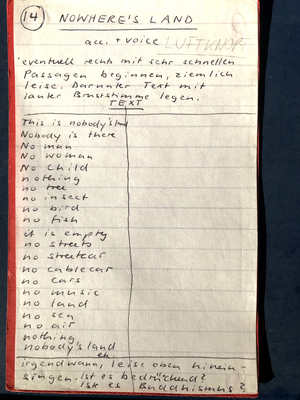 14 NOWHERE'S LAND
acc. + voice LUFTKNOPF
eventuell rechts mit sehr schnellen
Passagen beginnen, ziemlich
leise. Darunter Text mit
lauter Bruststimme legen.
TEXT
This is nobody's land
Nobody is there
No man
No woman
No child
nothing
no tree
no insect
no bird
no fish
it is empty
no streets
no streetcar
no cablecar
no cars
no music
no land
no sea
no air
nothing
nobody's land
irgendwann, leise oben hinein-
singen. Ist es bedrückend?
Ist es Buddhismus?